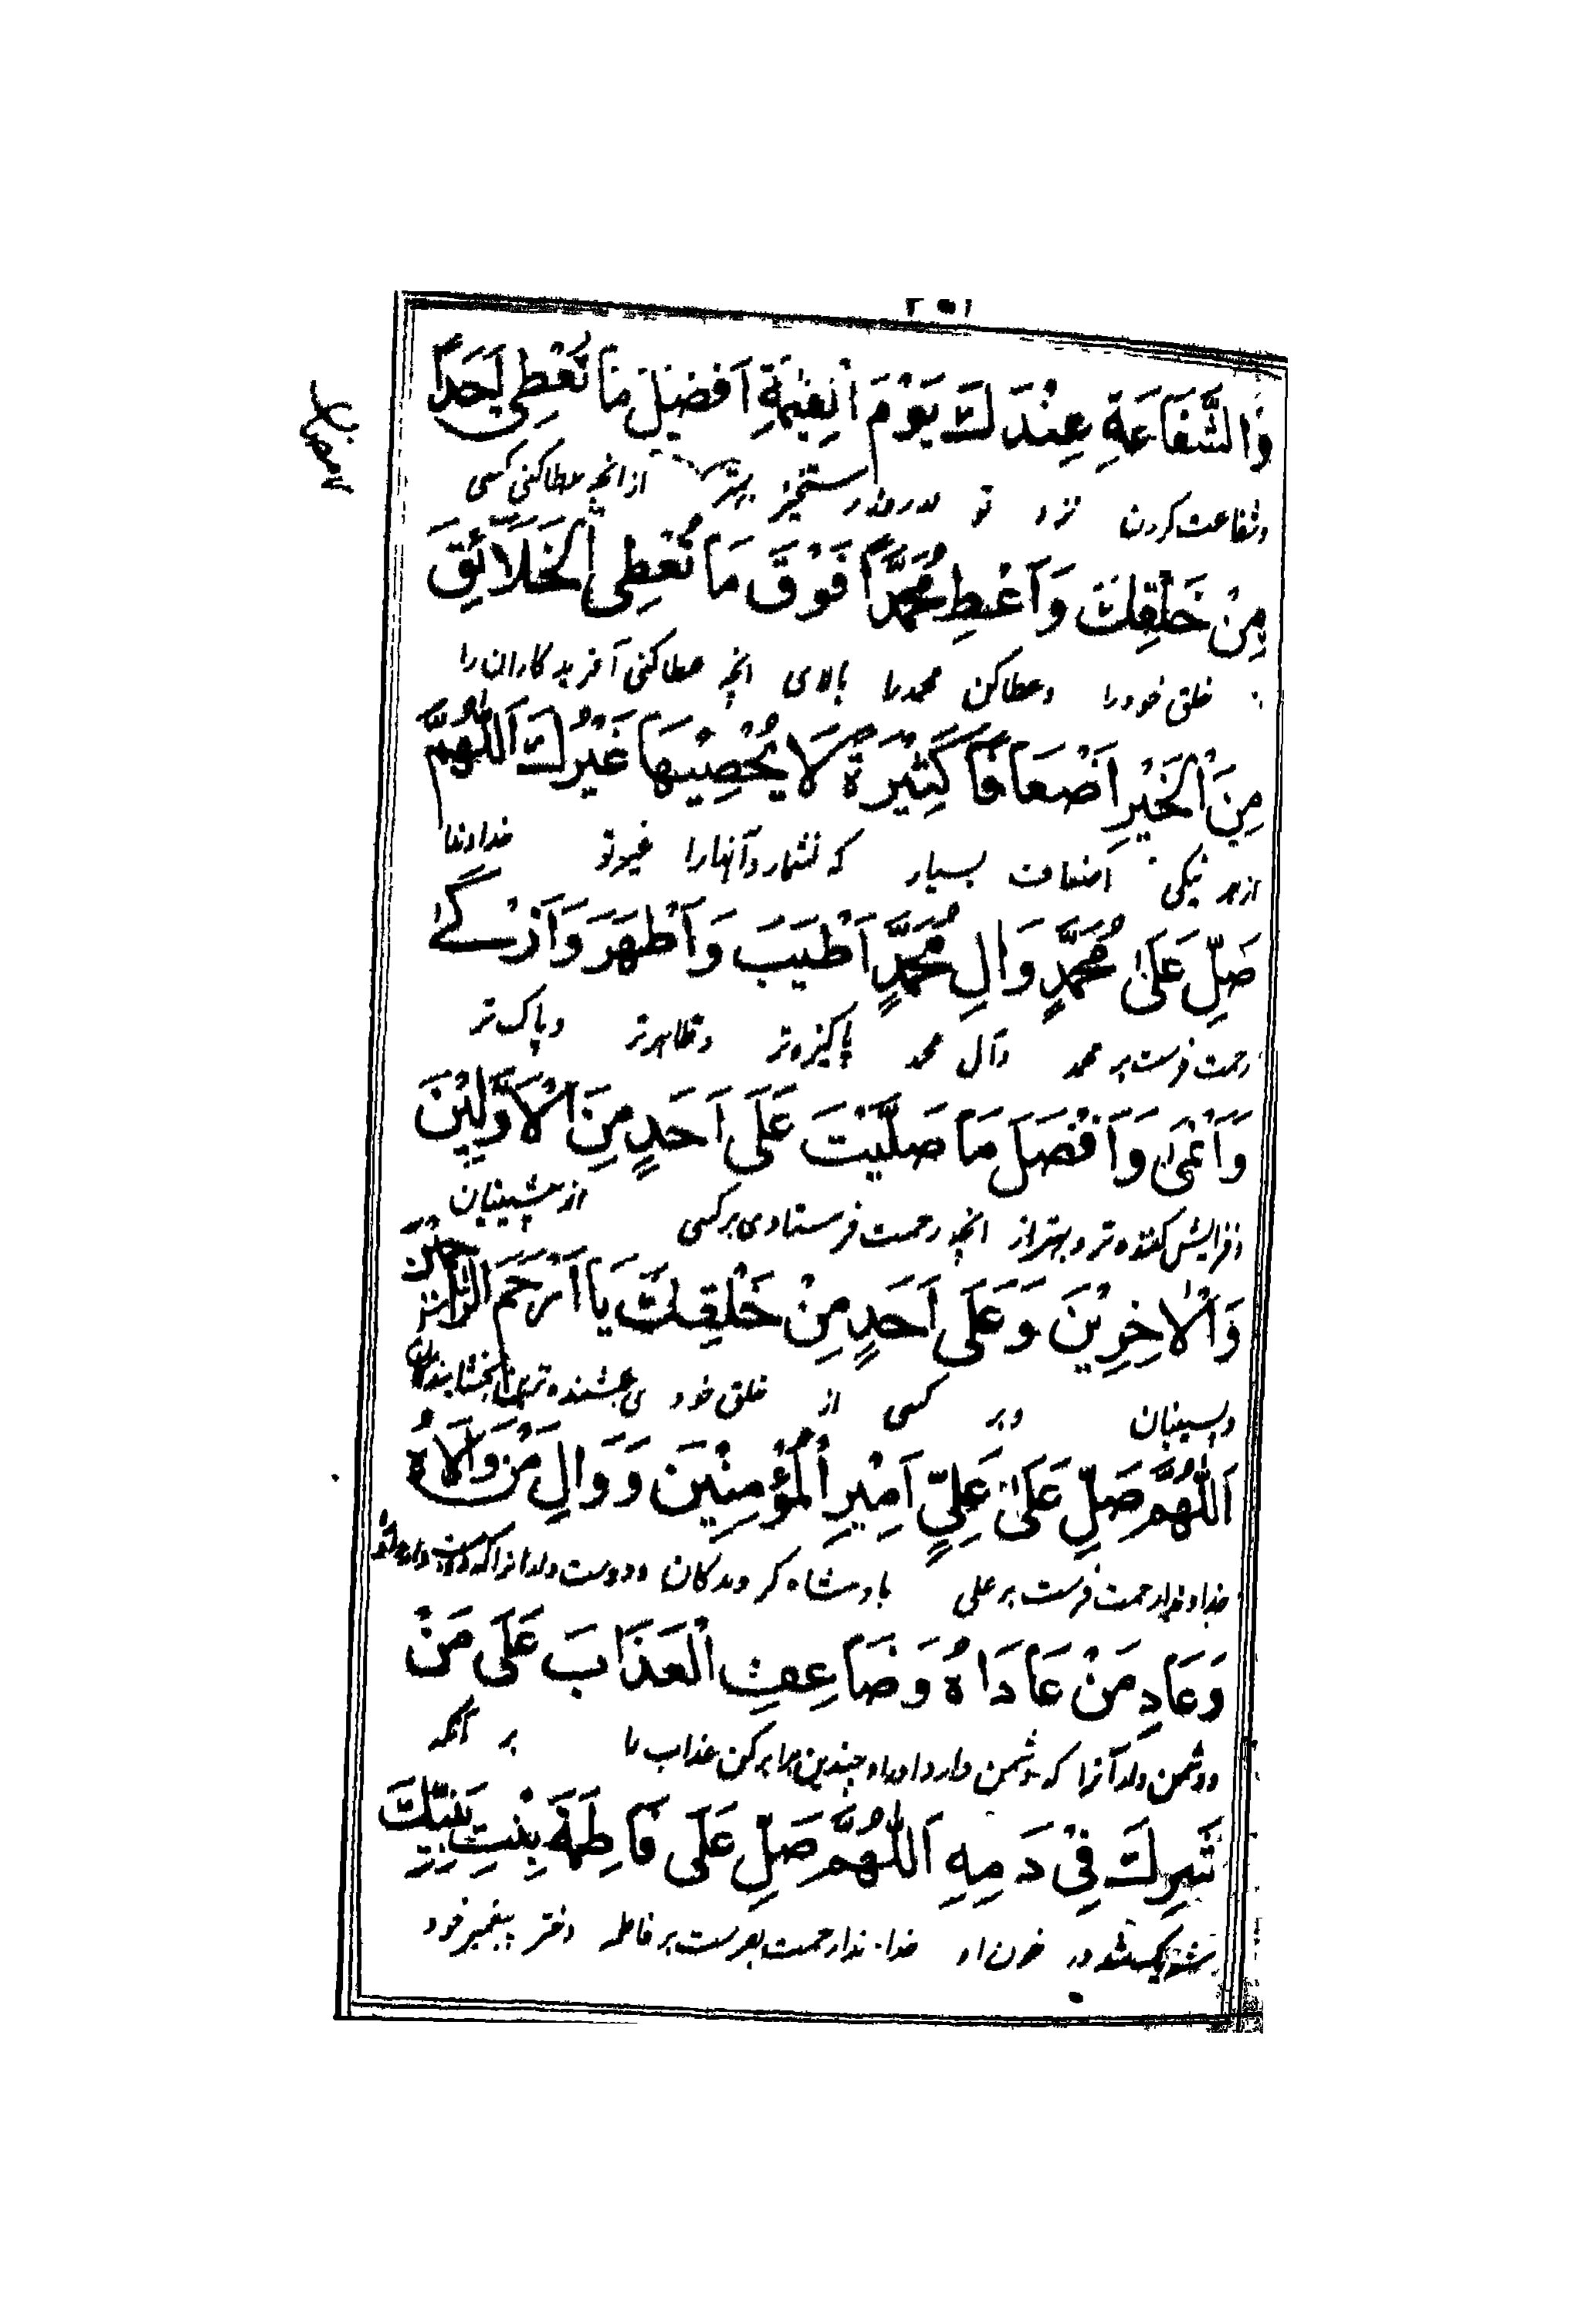 ۲۵۱
وَالشَّفَاعَةِ عِنْدَكَ يَوْمَ الْقِيٰمَةِ اَفْضَلَ مَا تُعْطِى اَحَداً
وشفاعت کردن نزد تو در روز رستخیز بهتر از انچه عطا کنی کسی
مِنْ خَلْقِكَ وَاَعْطِ مُحَمَّداً فَوْقَ مَا تُعْطِى الْخَلَآئِقَ
خلق خود را وعطا کن محمد را بالای انچه عطا کنی آفرید کاران را
مِنَ الْخَيْرِ اَضْعَافًا كَثِيْرَةً لَا يُحْصِيْهَا غَيْرُكَ اَللّٰهُمَّ
از هر نیکی اضعاف بسیار که نشمارد آنها را غیر تو خداوندا
صَلِّ عَلىٰ مُحَمَّدٍ وَاٰلِ مُحَمَّدٍ اَطْيَبَ وَاَطْهَرَ وَاَزْكٰے
رحمت فرست بر محمد وآل محمد پاکیزه تر وطاهر تر وپاک تر
وَاَنْمىٰ وَاَفْضَلَ مَا صَلَّيْتَ عَلَى اَحَدٍ مِنَ الْاَوَّلِيْنَ
وفزایش کننده تر وبهتر از انچه رحمت فرستادی بر کسی از پیشینیان
وَالْاٰخِرِيْنَ وَعَلَى اَحَدٍ مِنْ خَلْقِكَ يَا اَرْحَمَ الرَّاحِمِيْنَ
وپسینیان وبر کسی از خلق خود ی بخشنده ترین بخشایندگان
اَللّٰهُمَّ صَلِّ عَلىٰ عَلِيٍّ اَمِيْرِ الْمُؤْمِنِيْنَ وَوَالِ مَنْ وَالَاهُ
خداوندا رحمت فرست بر علی پادشاه کروندکان ودوست دار انرا که دوست دارد او
وَعَادِ مَنْ عَادَاهُ وَضَاعِفِ الْعَذَابَ عَلَى مَنْ
ودشمن دار آنرا که دشمن دارد او را وچندین برابر کن عذاب را بر آنکه
شَرِكَ فِىْ دَمِهِ اَللّٰهُمَّ صَلِّ عَلَى فَاطِمَةَ بِنْتِ نَبِيِّكَ
شریک شد در خون او خداوندا رحمت بفرست بر فاطمه دختر پیغمبر خود